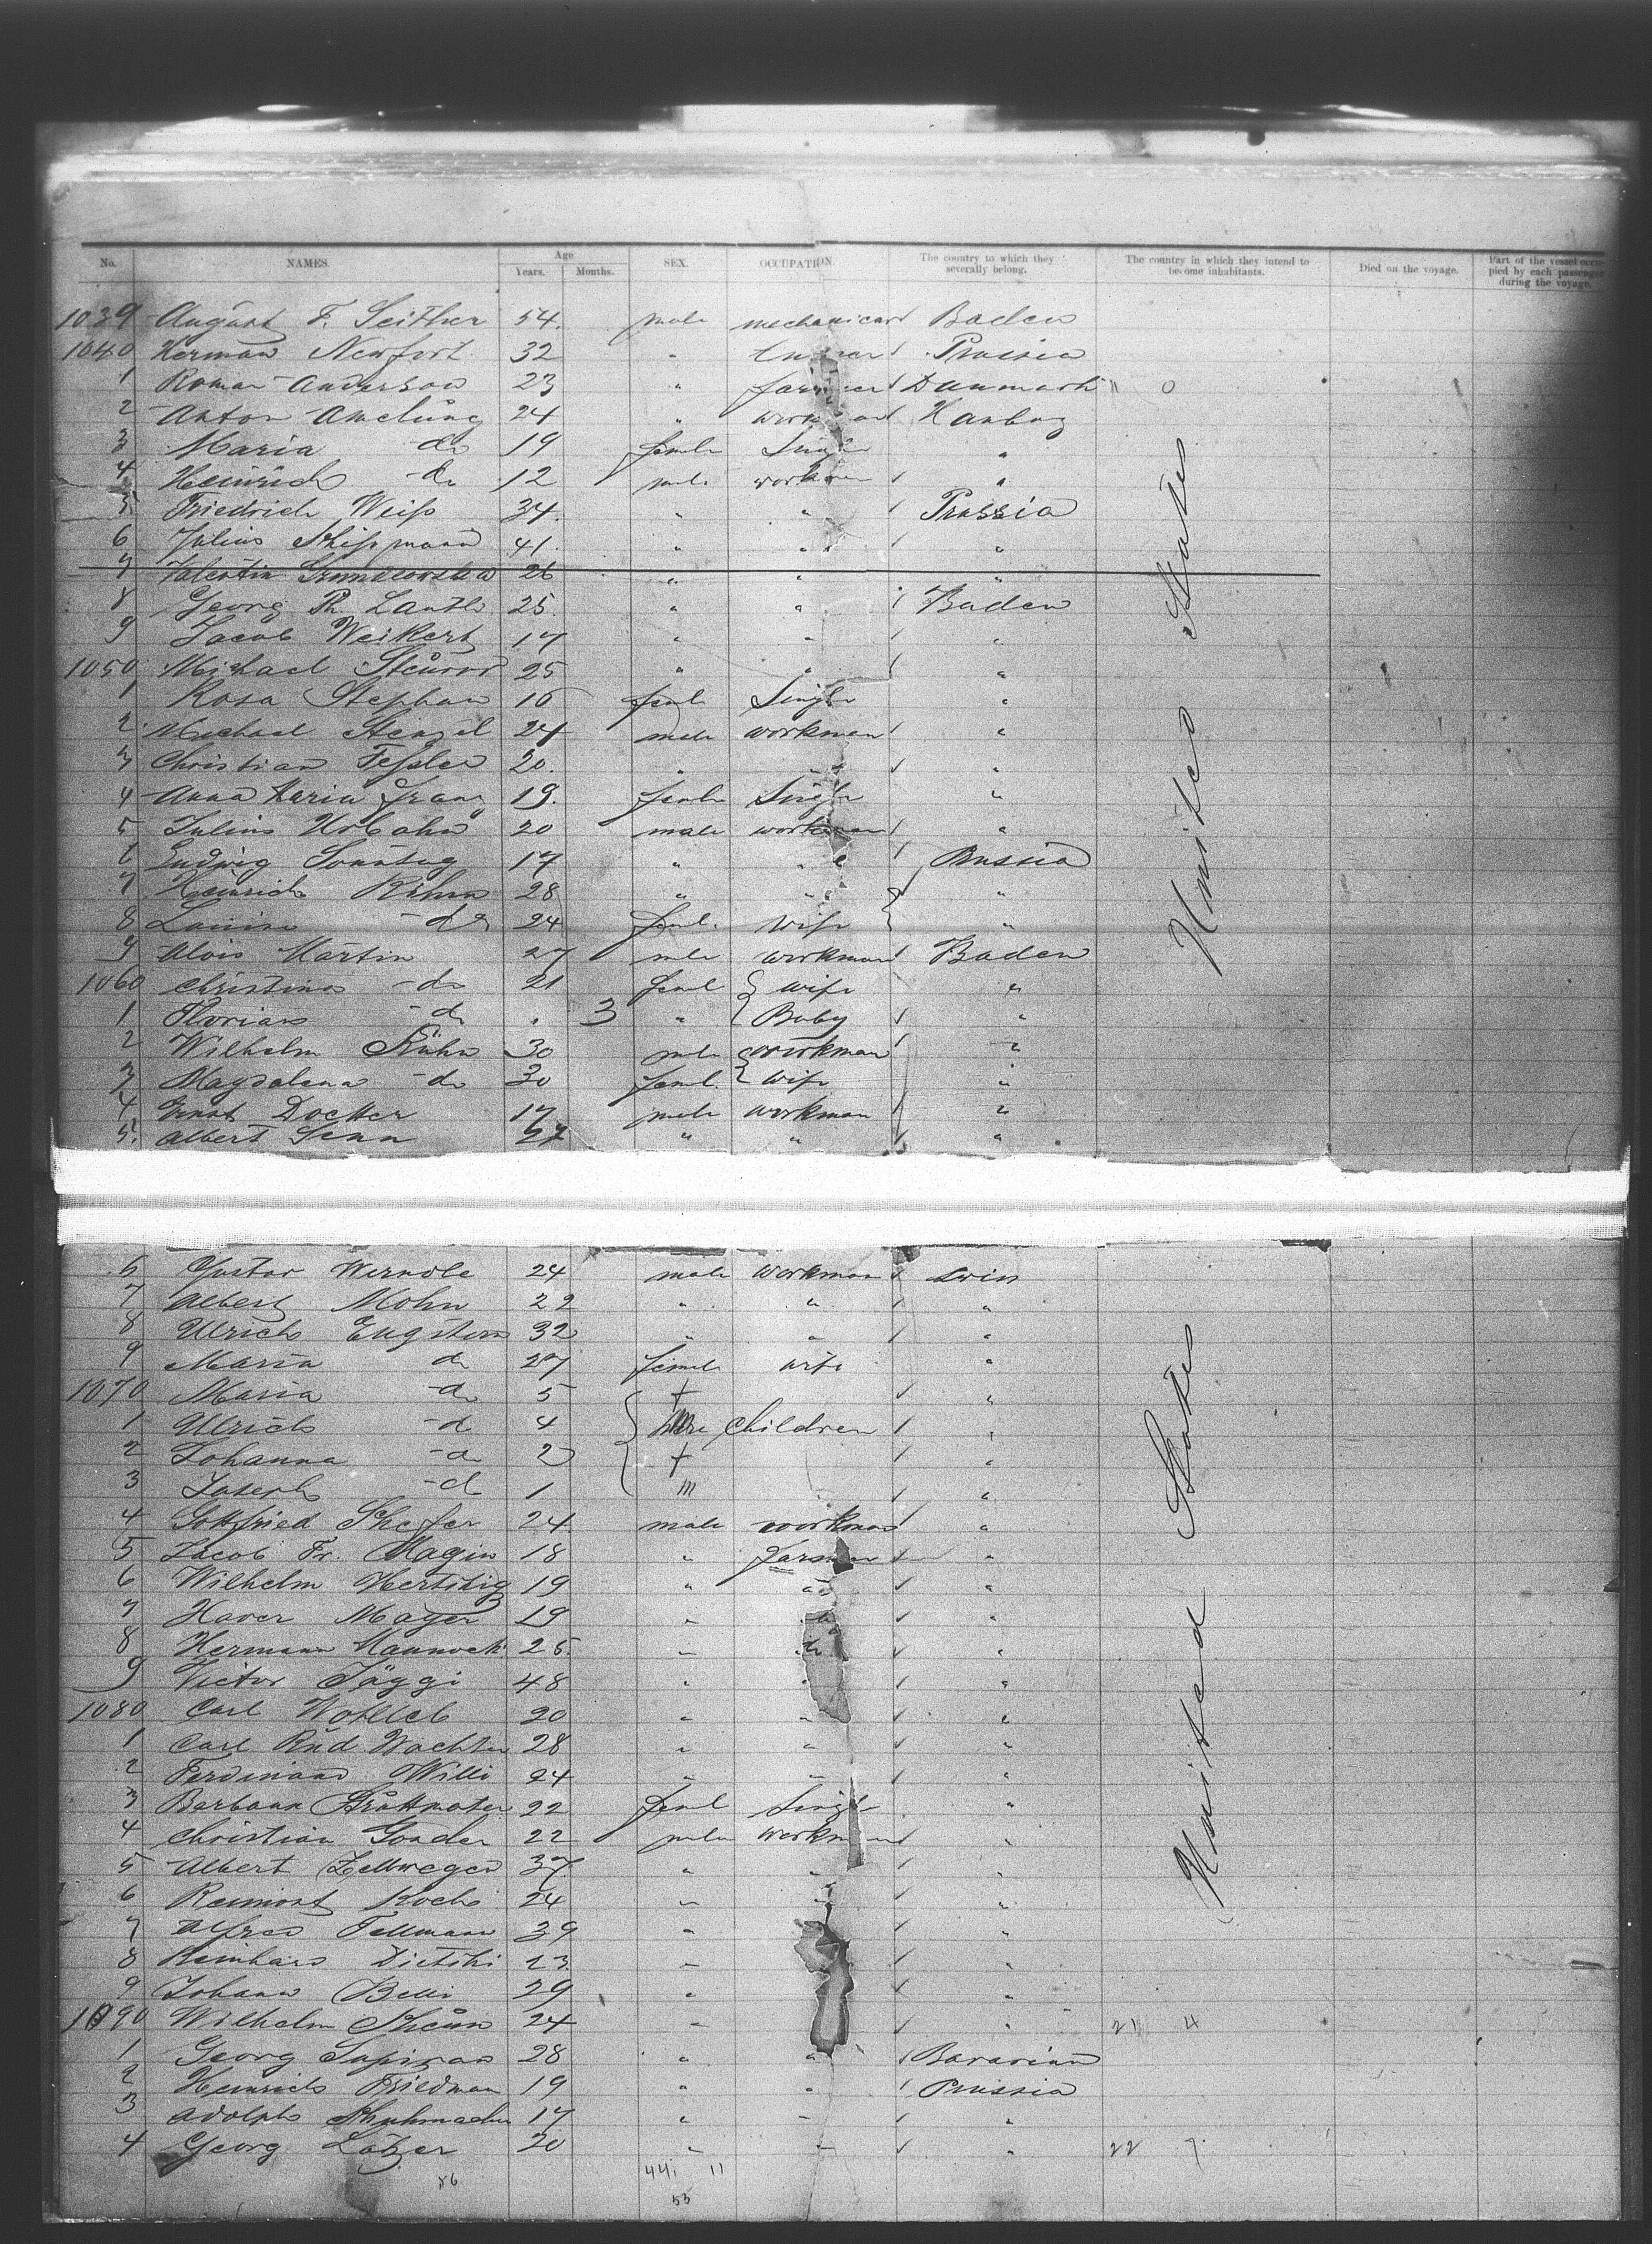 No. NAMES. Age Years. Months. SEX. OCCUPATION. The country to which they severally belong. The country in which they intend to become inhabitants. Died on the voyage. Part of the vessel occupied by each passenger during the voyage.
1039 August F. Seither 54. male mechanican Baden
1040 Herman Newfort 32 " Prussia
1 Roman Anderson 23 " farmer Danmark 11 0
2 Anton Amelung 24 " workman Hanburg
3 Maria do 19 femle Single "
4 Heinrich do 12 male workman "
5 Friedrich Weiß 34. " " Prussia
6 Julius 41. " " "
7 Valentin 26 " " "
8 Georg Ph. Lauth 25. " " Baden
9 Jacob Weikert 17 " " "
1050 Michael 25 " " "
1 Rosa Stephan 16 feml Single "
2 Michael Stenzel 24 male workman "
3 Christian Feßler 20. " " "
4 Anna Maria Franz 19. femle Single "
5 Julius Urbahn 20 male workman "
6 Ludwig Sonntag 17 " " Prussia
7 Heinrich 28 " " "
8 Louise do 24 feml. Wife "
9 Alois Martin 27 male workman Baden
1060 Christina do 21 feml wife "
1 Florian do . 3 " Baby "
2 Wilhelm Kühn 30 male workman "
3 Magdalena do 30 feml. wife "
4 Ernst Docker 17 male workman "
5. Albert Senn 27 " " "
6 Gustav Werndle 24 male workman Swiss
7 Albert Mohn 22 " " "
8 Ulrich 32 " " "
9 Maria do 27 femle wife "
1070 Maria do 5 f "
1 Ulrich do 4 Children "
2 Johanna do 2 f "
3 Joseph do 1 m "
4 Gottfried Shefer 24. male workman "
5 Jacob Fr. Magin 18 " farmer "
6 Wilhelm Hertitig 19 " " "
7 Xaver Mayer 19 " " "
8 Hermann 25. " " "
9 Victor Jäggi 48 " " "
1080 Carl Wohlleb 20 " " "
1 Carl Rud Wachter 28 " " "
2 Ferdinand Willi 24 " " "
3 Barbara 22 feml Single "
4 Christian Gonder 22 male workman "
5 Albert Zellweger 37. " " "
6 Reimont Koch 24 " " "
7 Alfred Tellmann 39 " "
8 Reinhard Dietschi 23. " "
9 Johann Belli 29 " "
1090 Wilhelm 24 " " 21 4
1 Georg 28 " " Bavarian
2 Heinrich Friedman 19 " " Prussia
3 Adolph Shuhmacher 17 " " "
4 Georg Lötzer 20 " " " 22 9
86 44 11
53
United States
United States